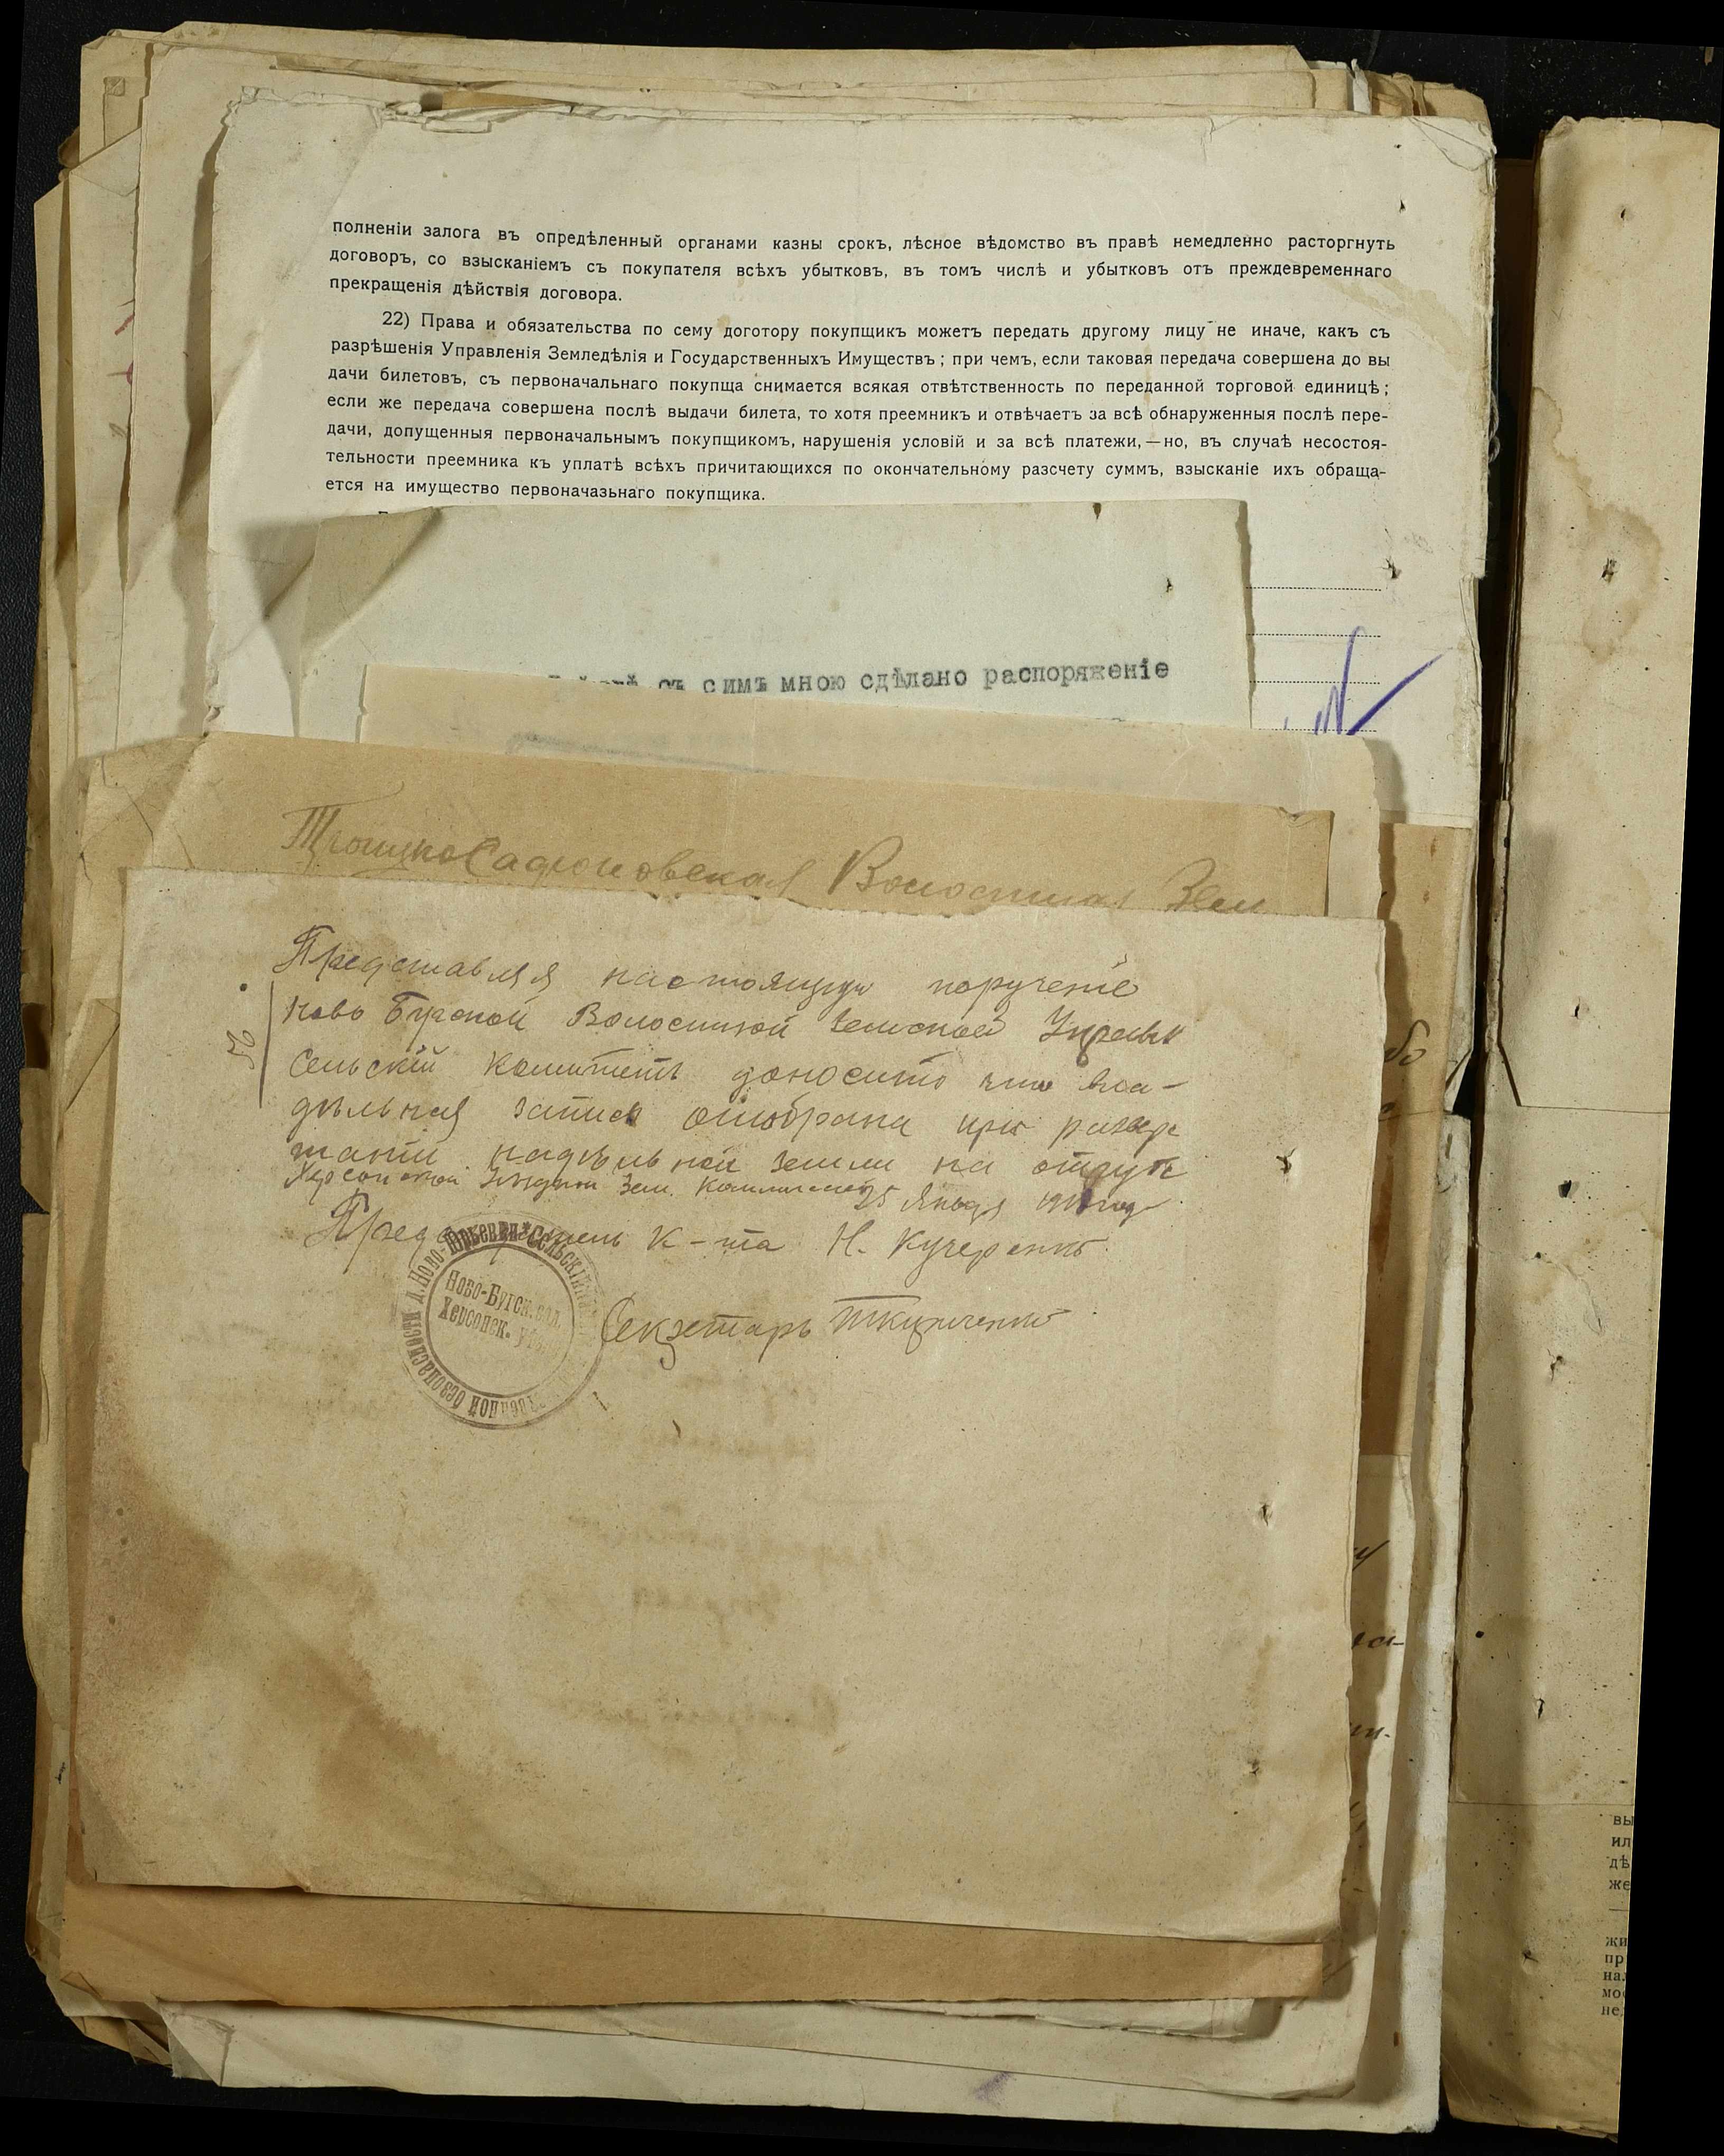 полненіи залога въ опредѣленный органами казны срокъ, лѣсное вѣдомство въ правѣ немедленно расторгнуть
договоръ, со взысканіемъ съ покупателя всѣхъ убытковъ, въ томъ числѣ и убытковъ отъ преждевременнаго
прекращенія дѣйствія договора.
22) Права и обязательства по сему договору покупщикъ можетъ передать другому лицу не иначе, какъ съ
разрѣшенія Управленія Земледѣлія и Государственныхъ Имуществъ; при чемъ, если таковая передача совершена до вы
дачи билетовъ, съ первоначальнаго покупща снимается всякая отвѣтственность по переданной торговой единицѣ;
если же передача совершена послѣ выдачи билета, то хотя преемникъ и отвѣчаетъ за всѣ обнаруженныя послѣ пере-
дачи, допущенныя первоначальнымъ покупщикомъ, нарушенія условій и за всѣ платежи,—но, въ случаѣ несостоя-
тельности преемника къ уплатѣ всѣхъ причитающихся по окончательному разсчету суммъ, взысканіе ихъ обраща-
ется на имущество первоначазьнаго покупщика.
съ симъ мною сдѣлано распоряженіе
Троицко Сафоновская Волостная Зем
Представляя настоящую порученіе
Ново Бугской Волостной Земской Управы
Сельскій Комитетъ доноситъ что вла-
дѣльная запись отобрана при развер
таніи надѣльной земли на отруба
Херсонской Уѣздной Зем. Коммиссіей 25 Января
Предсѣдатель К-та Н. Кучеренко
Секэтарь Ткаченко
д. Ново-Юрьевки * Сельскій
безопасности
Ново-Бугск. вол.
Херсонск. у
вы
ил
дѣ
же
жи
пр
нал
мос
не